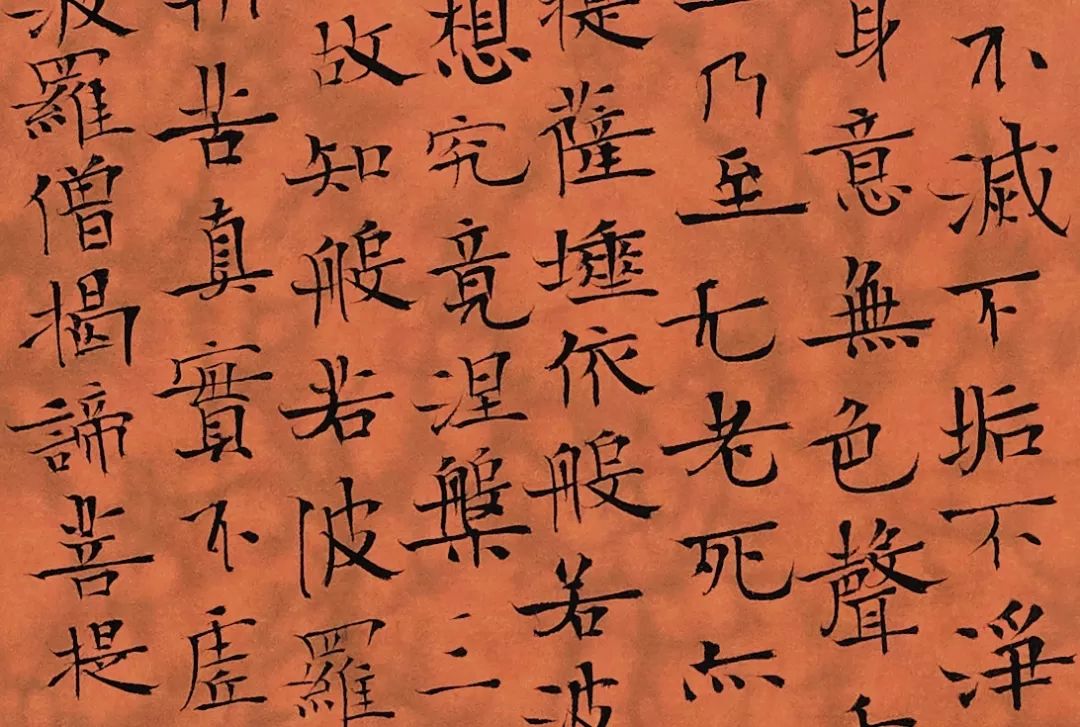 不滅不垢不淨
身意無色聲
乃至无老死亦
提薩埵依般若波
想究竟涅槃三
故知般若波羅
苦真實不虛
波羅僧揭諦菩提